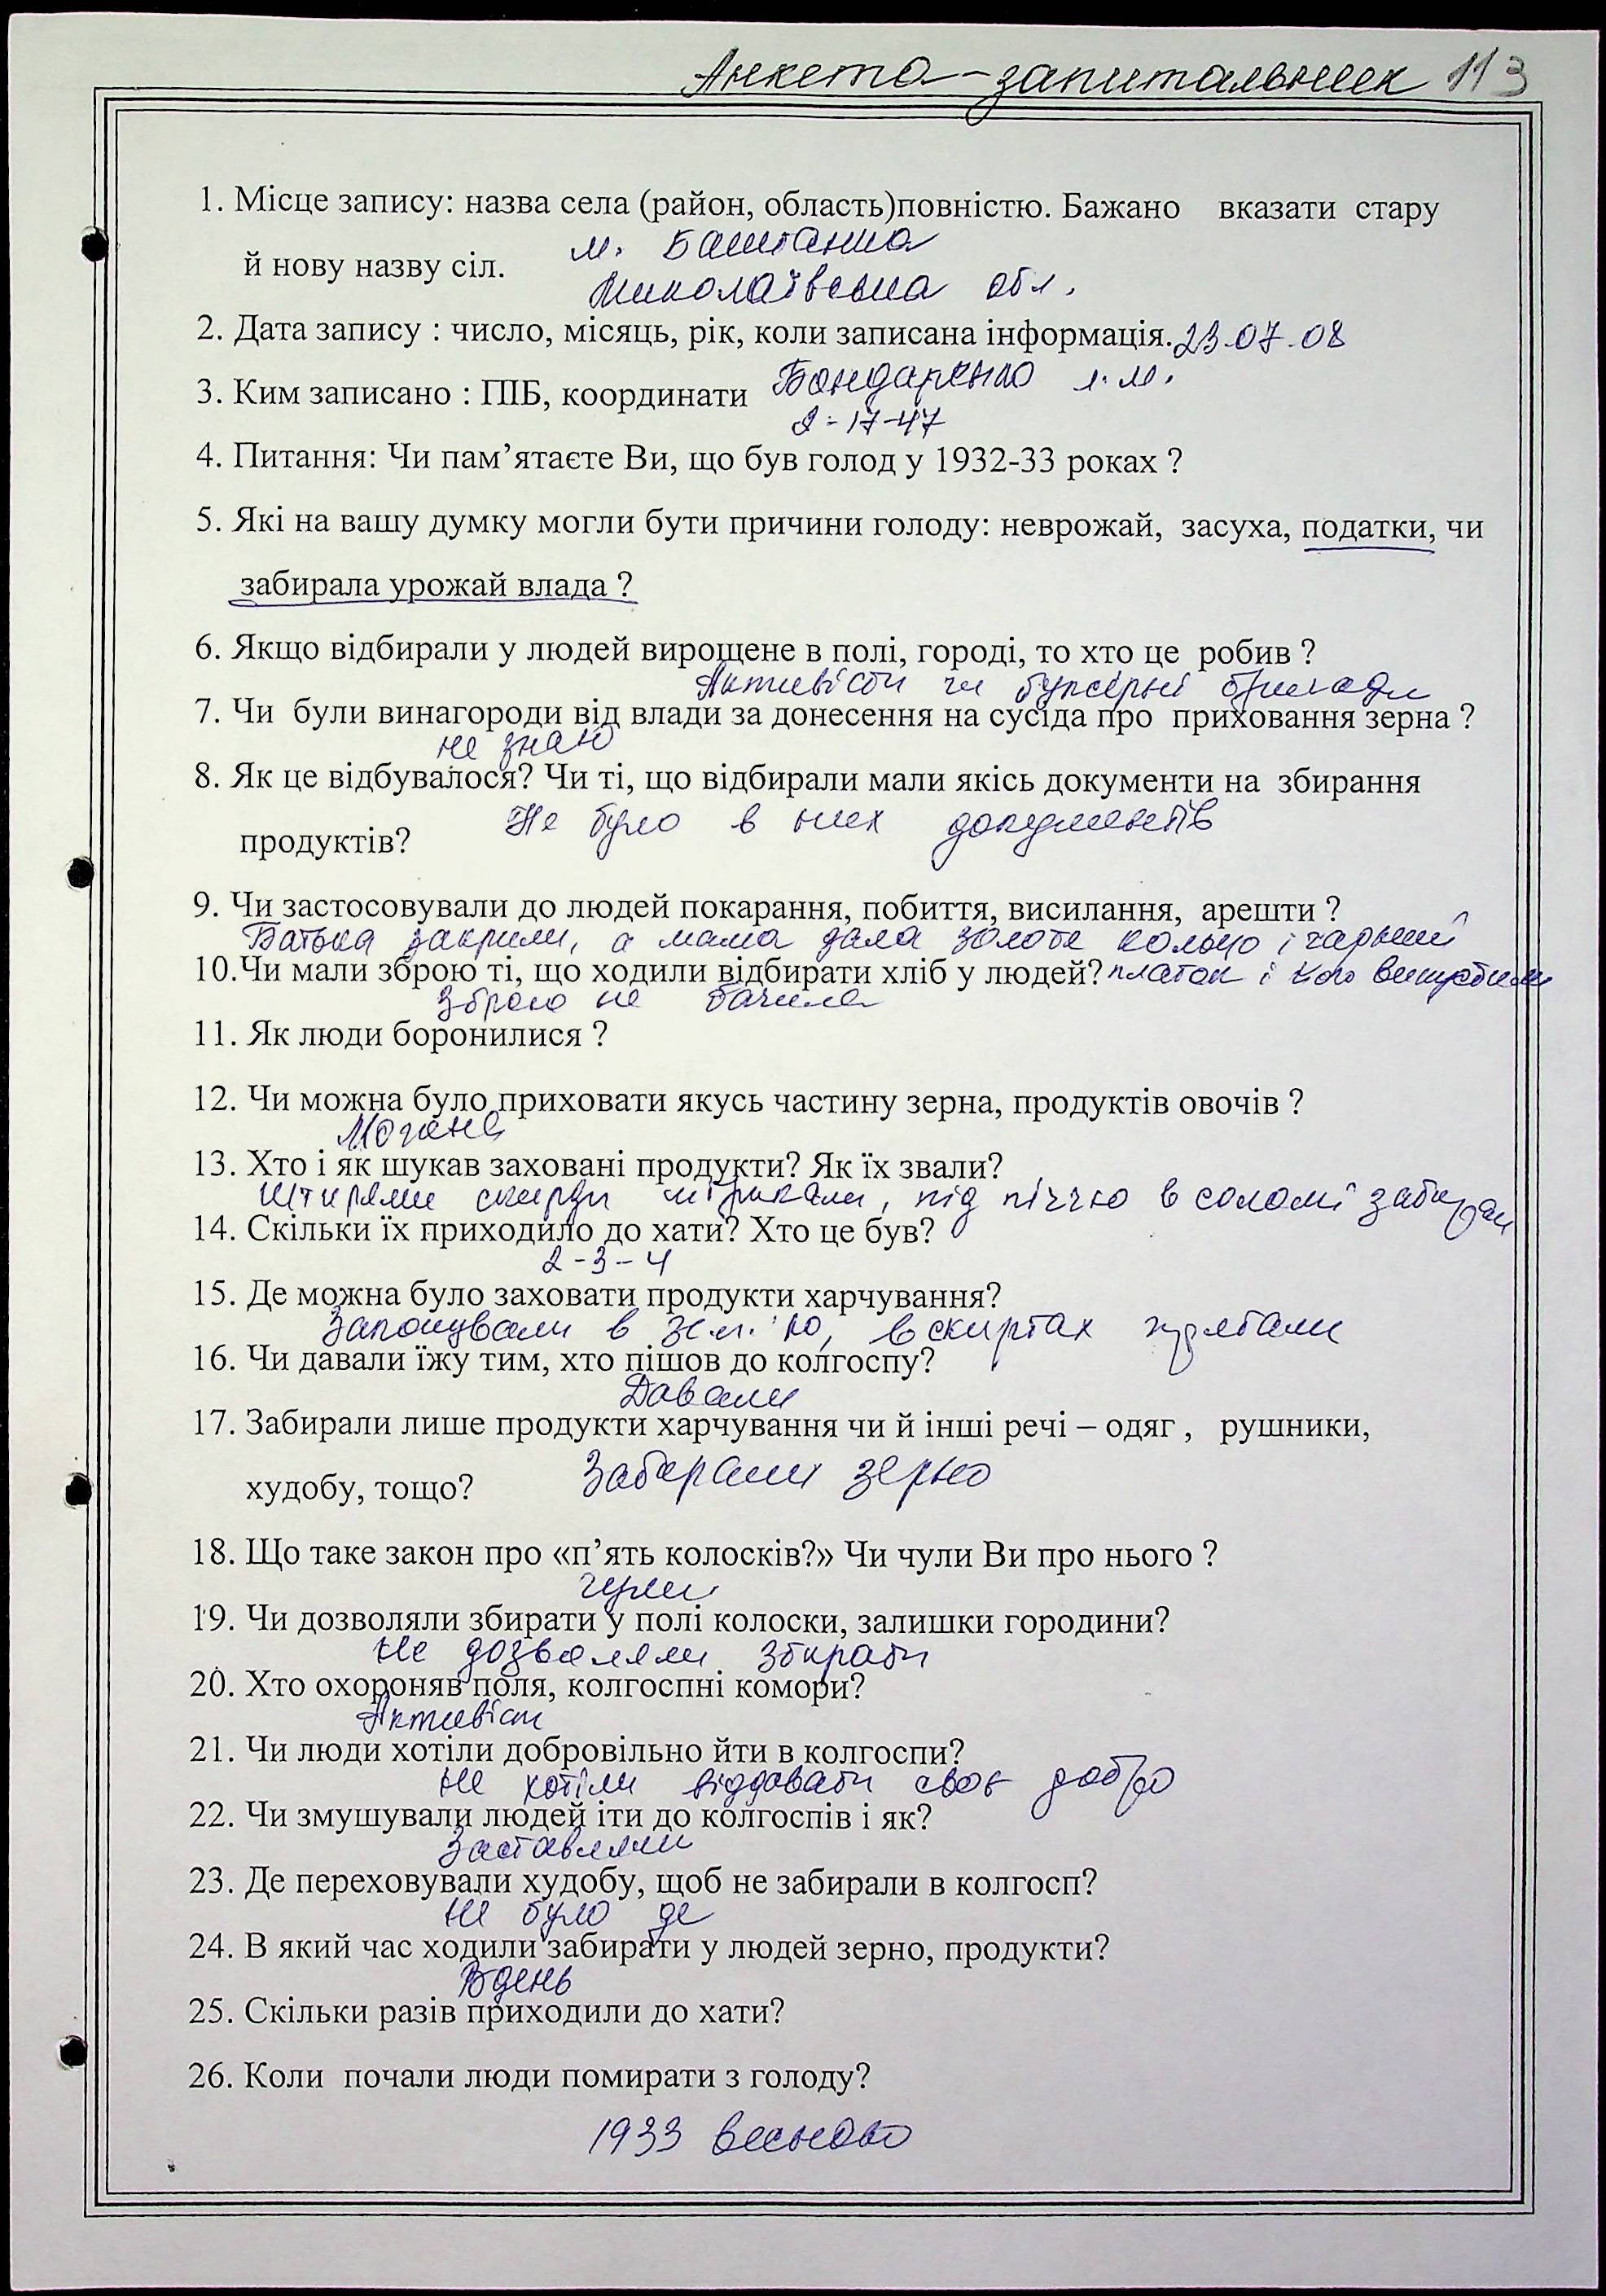 Анкета-запитальник 113
1. Місце запису: назва села (район, область)повністю. Бажано вказати стару
м. Баштанка
й нову назву сіл.
Миколаївська обл.
2. Дата запису : число, місяць, рік, коли записана інформація. 23.07.08
3. Ким записано : ПІБ, координати Бондаренко Л.М.
2-17-47
4. Питання: Чи пам’ятаєте Ви, що був голод у 1932-33 роках ?
5. Які на вашу думку могли бути причини голоду: неврожай, засуха, податки, чи
забирала урожай влада ?
6. Якщо відбирали у людей вирощене в полі, городі, то хто це робив ?
Активісти чи буксірні бригади
7. Чи були винагороди від влади за донесення на сусіда про приховання зерна ?
не знаю
8. Як це відбувалося? Чи ті, що відбирали мали якісь документи на збирання
Не було в них документів
продуктів?
9. Чи застосовували до людей покарання, побиття, висилання, арешти ?
Батька закрили, а мама дала золоте кольцо і гарний
10.Чи мали зброю ті, що ходили відбирати хліб у людей? платок і його випустили
Зброю не бачила
11. Як люди боронилися ?
12. Чи можна було приховати якусь частину зерна, продуктів овочів ?
Погано
13. Хто і як шукав заховані продукти? Як їх звали?
Штирями скирди ширикали, під піччю в соломі забирали
14. Скільки їх приходило до хати? Хто це був?
2-3-4
15. Де можна було заховати продукти харчування?
Закопували в землю, в скиртах прятали
16. Чи давали їжу тим, хто пішов до колгоспу?
Давали
17. Забирали лише продукти харчування чи й інші речі – одяг , рушники,
Забирали зерно
худобу, тощо?
18. Що таке закон про «п’ять колосків?» Чи чули Ви про нього ?
чули
19. Чи дозволяли збирати у полі колоски, залишки городини?
Не дозволяли збирати
20. Хто охороняв поля, колгоспні комори?
Активіст
21. Чи люди хотіли добровільно йти в колгоспи?
Не хотіли віддавати своє добро
22. Чи змушували людей іти до колгоспів і як?
Заставляли
23. Де переховували худобу, щоб не забирали в колгосп?
Не було де
24. В який час ходили забирати у людей зерно, продукти?
Вдень
25. Скільки разів приходили до хати?
26. Коли почали люди помирати з голоду?
1933 весною